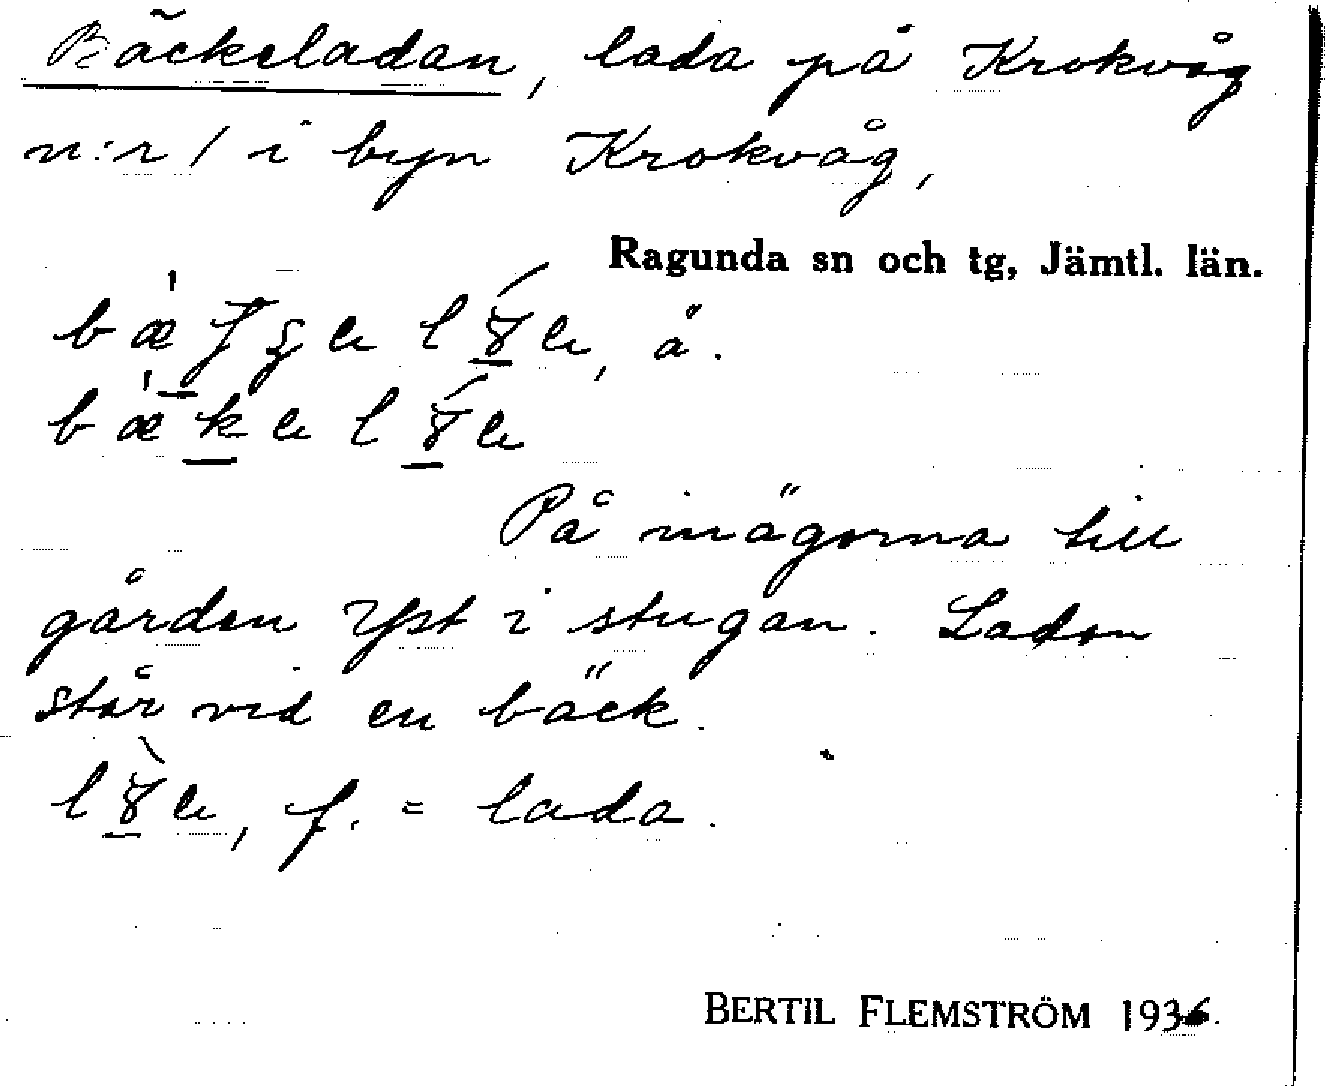 Bäckeladan, lada på Krokvåg
n:r 1 i byn Krokvåg,
Ragunda sn och tg, Jämtl. län.
å.
På inägorna till
gården Yst i stugan. Ladan
står vid en bäck.
f. = lada.
BERTIL FLEMSTRÖM 1936.